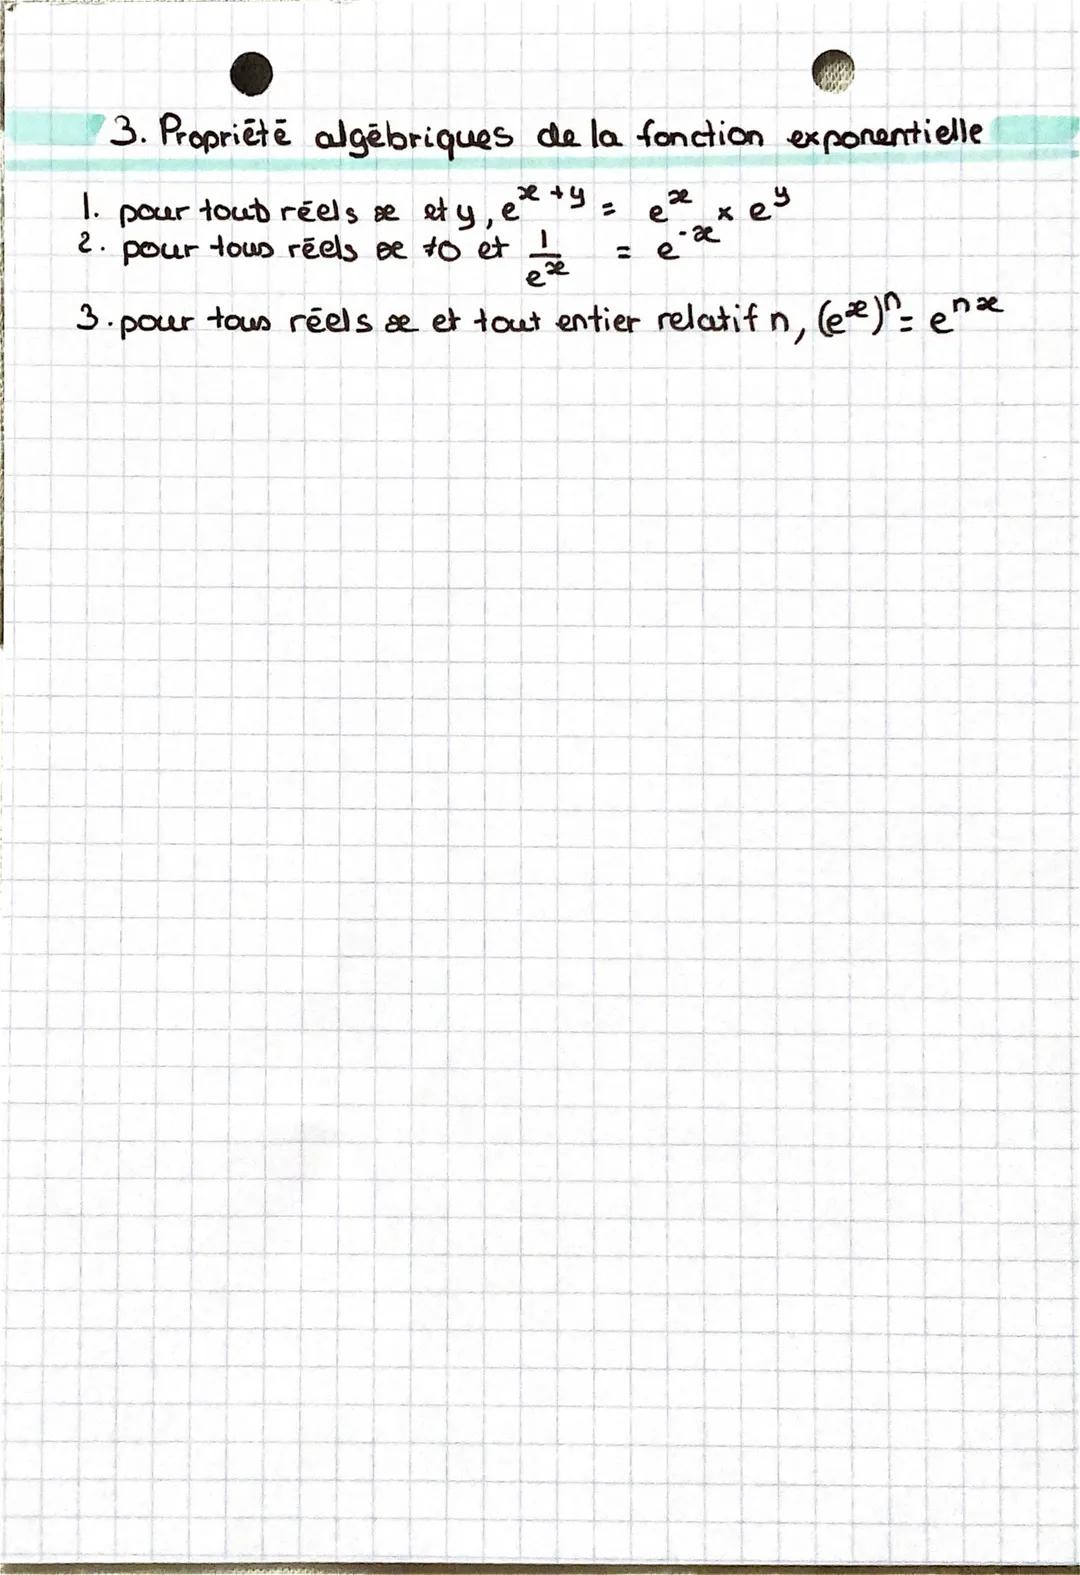 3. Propriété algébriques de la fonction exponentielle
1. pour tout réels x et y, e^{x+y} = e^x × e^y
2. pour tous réels x ≠0 et \frac{1}{e^x} = e^{-x}
3. pour tous réels x et tout entier relatif n, (e^x)^n = e^{nx}